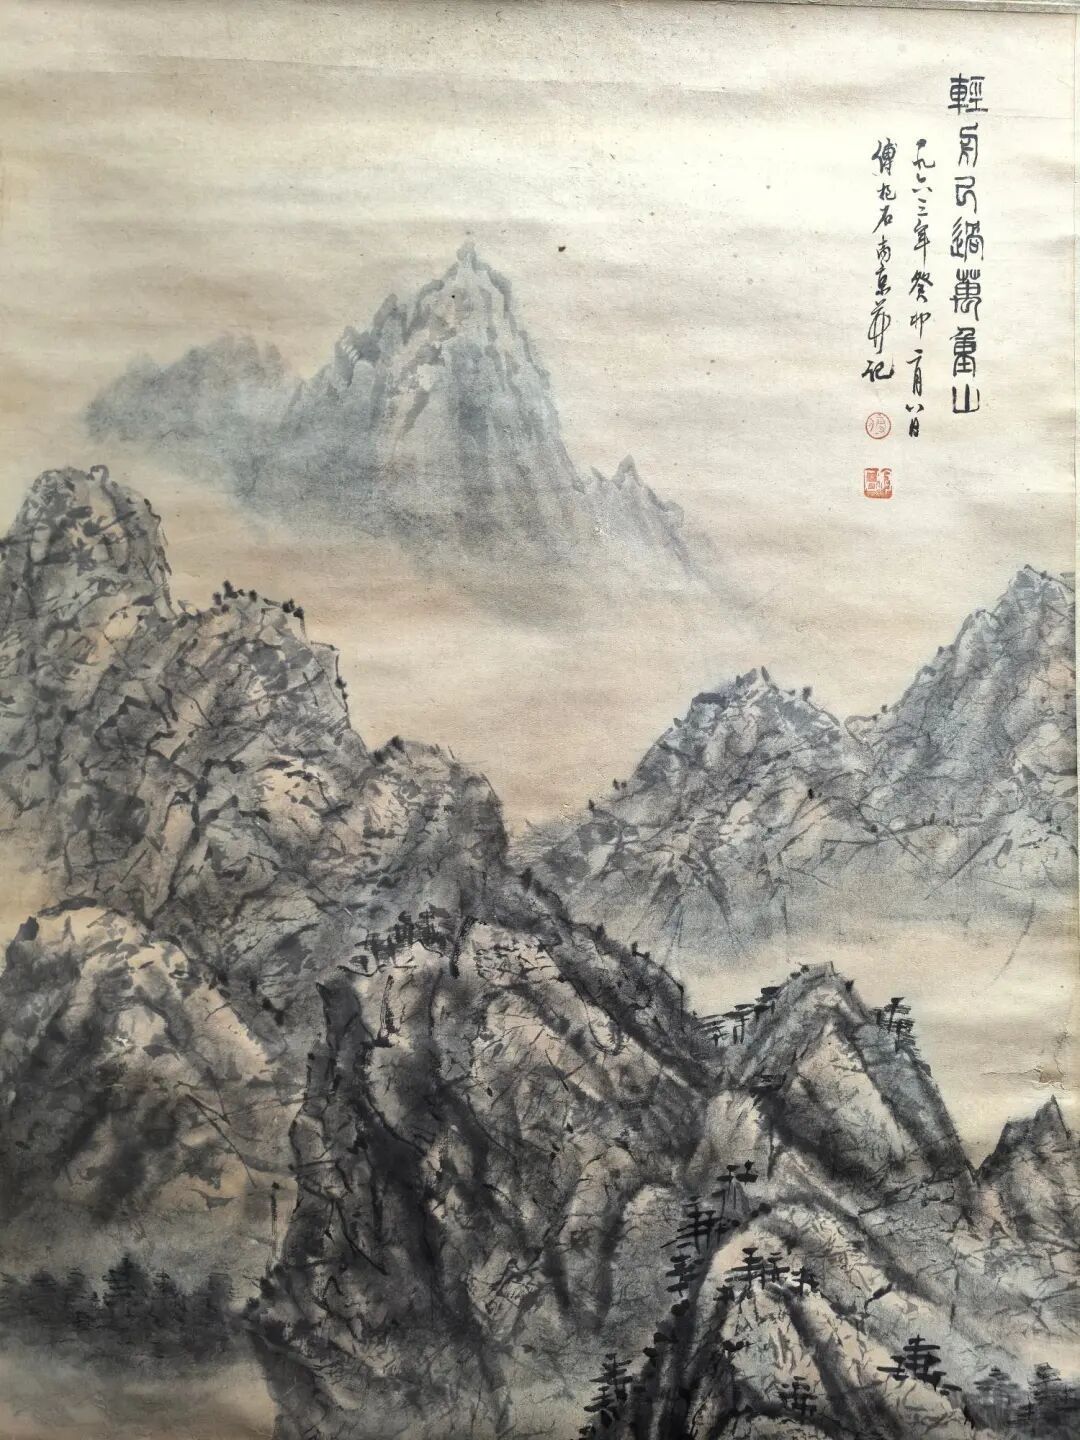 輕舟已過萬重山
一九六三年癸卯二月八日
傅抱石南京并记